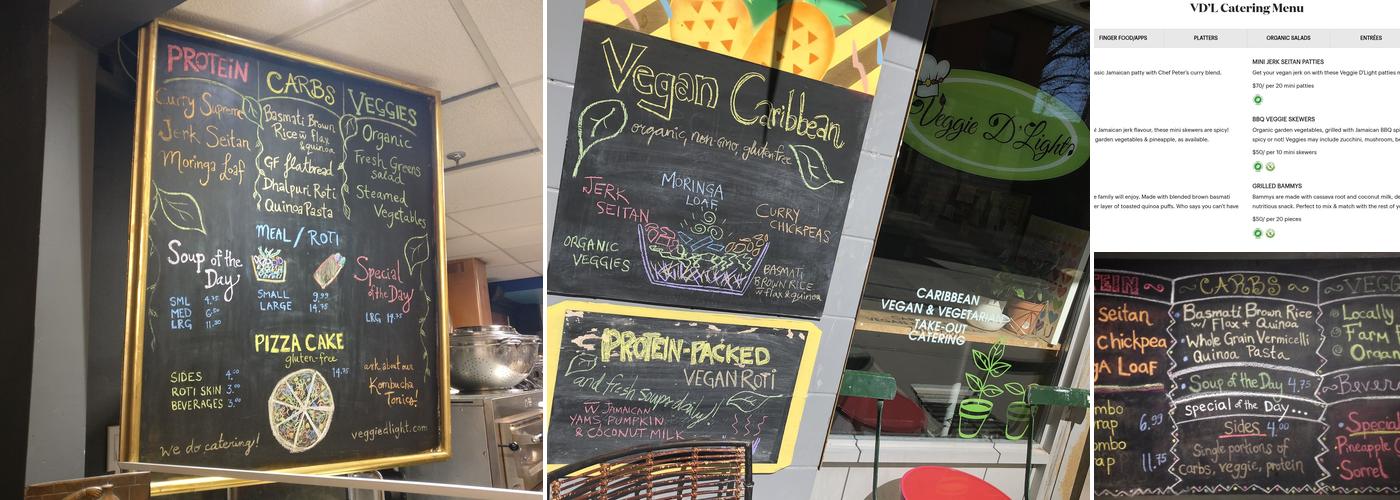 PROTEIN
Curry Supreme
Jerk Seitan
Moringa Loaf
CARBS
Basmati Brown
Rice w Flax
& quinoa
GF flatbread
Dhalpuri Roti
Quinoa Pasta
VEGGIES
Organic
Fresh Greens
salad
Steamed
Vegetables
Soup of the
Day
SML 4.75
MED 6.50
LRG 11.50
MEAL / ROTI
SMALL 9.99
LARGE 14.75
Special
of the Day
LRG 14.75
PIZZA CAKE
gluten-free
14.75
SIDES 4.00
ROTI SKIN 3.00
BEVERAGES 3.00
ask about our
Kombucha
Tonics!
We do catering!
veggiedlight.com
Vegan Caribbean
organic, non-gmo, gluten-free
JERK
SEITAN
MORINGA
LOAF
CURRY
CHICKPEAS
ORGANIC
VEGGIES
BASMATI
BROWN RICE
w flax & quinoa
PROTEIN-PACKED
VEGAN ROTI
and fresh soups daily!
W JAMAICAN
YAMS, PUMPKIN
& COCONUT MILK
Veggie D'Light
CARIBBEAN
VEGAN & VEGETARIAN
TAKE-OUT
CATERING
VD'L Catering Menu
FINGER FOOD/APPS
PLATTERS
ORGANIC SALADS
ENTRÉES
ssic Jamaican patty with Chef Peter's curry blend.
Jamaican jerk flavour, these mini skewers are spicy!
garden vegetables & pineapple, as available.
e family will enjoy. Made with blended brown basmati
er layer of toasted quinoa puffs. Who says you can't have
MINI JERK SEITAN PATTIES
Get your vegan jerk on with these Veggie D'Light patties
$70/ per 20 mini patties
BBQ VEGGIE SKEWERS
Organic garden vegetables, grilled with Jamaican BBQ
spicy or not! Veggies may include zucchini, mushroom,
$50/ per 10 mini skewers
GRILLED BAMMYS
Bammys are made with cassava root and coconut milk,
nutritious snack. Perfect to mix & match with the rest of
$50/ per 20 pieces
EIN
Seitan
Chickpea
GA Loaf
mbo
rap 6.99
ombo
rap 11.75
CARBS
Basmati Brown Rice
w/ Flax + Quinoa
Whole Grain Vermicelli
Quinoa Pasta
Soup of the Day 4.75
special of the Day...
Sides 4.00
Single portions of
carbs, veggie, protein
VEGG
Locally
Farm
Organ
Bever
Special
Pineapple
Sorrel